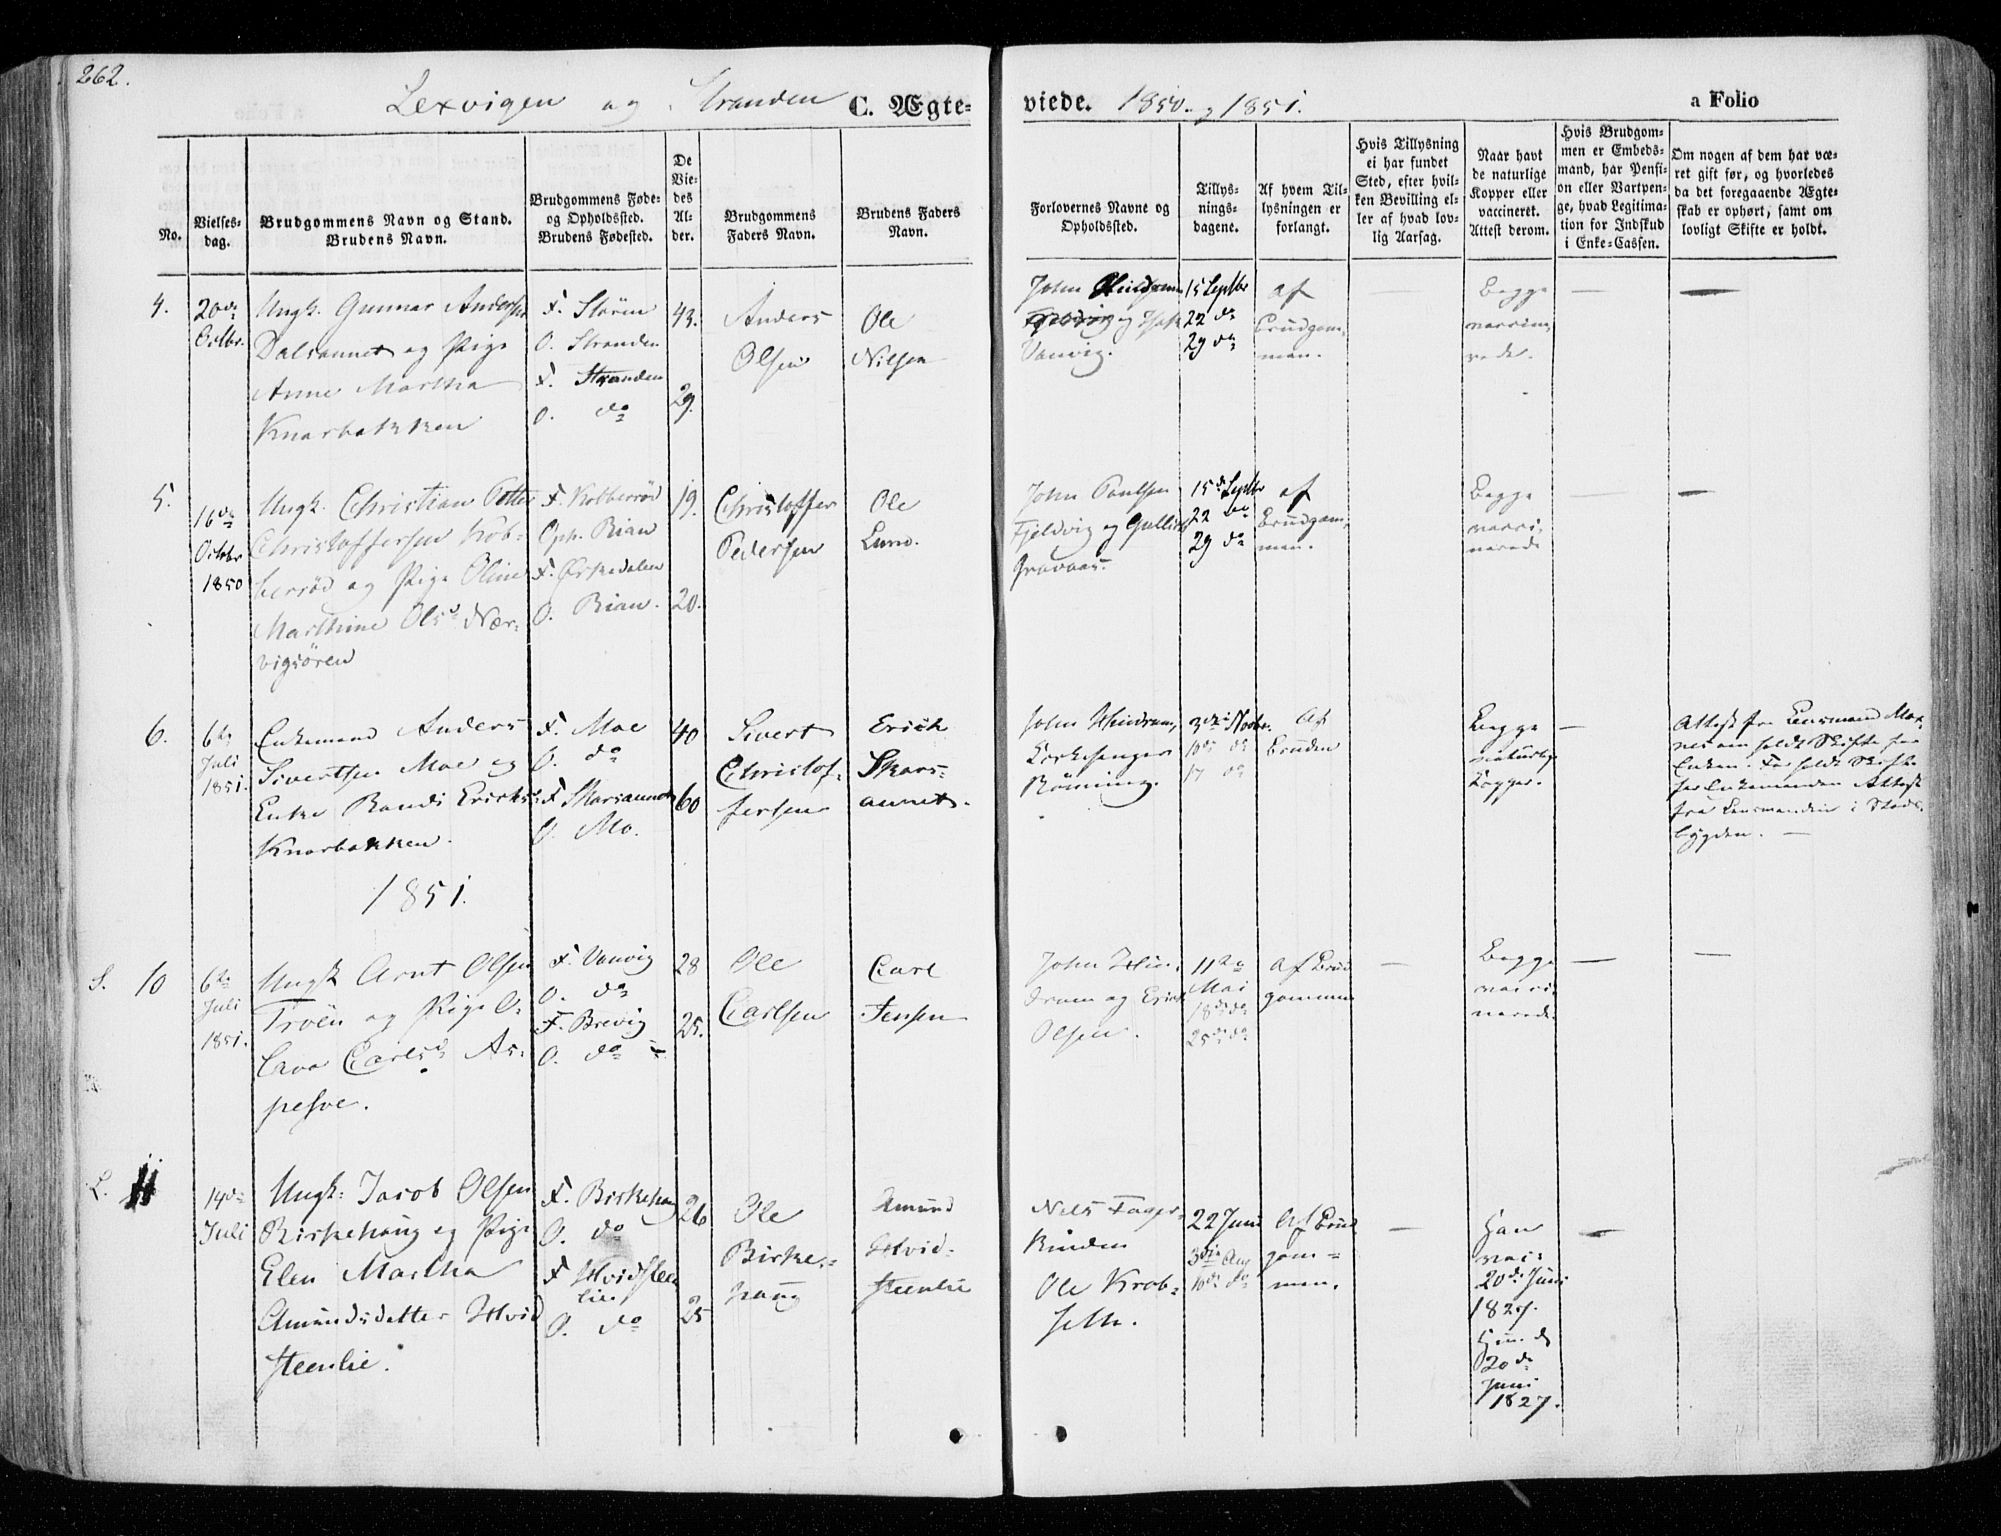 262.
Lexvigen og Stranden C. Ægte-
viede. 1850. og 1851.
a Folio
No.
Vielses-
dag.
Brudgommens Navn og Stand.
Brudens Navn.
Brudgommens Føde-
og Opholdssted.
Brudens Fødested.
De
Vie-
des
Al-
der.
Brudgommens
Faders Navn.
Brudens Faders
Navn.
Forlovernes Navne og
Opholdssted.
Tillys-
nings-
dagene.
Af hvem Til-
lysningen er
forlangt.
Hvis Tillysning
ei har fundet
Sted, efter hvil-
ken Bevilling el-
ler af hvad lov-
lig Aarsag.
Naar havt
de naturlige
Kopper eller
vaccineret.
Attest derom.
Hvis Brudgom-
men er Embeds-
mand, har Pensi-
on eller Vartpen-
ge, hvad Legitima-
tion for Indskud
i Enke-Cassen.
Om nogen af dem har væ-
ret gift før, og hvorledes
da det foregaaende Ægte-
skab er ophørt, samt om
lovligt Skifte er holdt.
4.
20de
Octbr.
Ungk. Gunnar Andersen
Dalsaunet og Pige
Anne Martha
Knarbakken
F. Stören
O. Stranden
F. Stranden
O. do
43.
29.
Anders
Olsen
Ole
Nilsen
John Hindrum
og
Vanvig.
15 Septbr
22 do
29 do
af
Brudgom-
men.
Begge
vaccine-
rede.
5.
16de
Octobr
1850
Ungk. Christian Petter
Christoffersen Kob-
berrød og Pige Oline
Marthine Olsd. Nær-
vigsören
F. Kobberröd
Oph. Rian
F. Ørkedalen
O. Rian.
19.
20.
Christoffer
Pedersen
Ole
Lund.
John Paulsen
Fjeldvig og
15de Septbr
22 do
29 do
af
Brudgom-
men.
Begge
vacci-
nerede
6.
6te
Juli
1851.
Enkemand Anders
Sivertsen Moe og
Enke Randi Ericksd.
Knarbakken.
F. Moe
O. do
F.
O. Mo.
40
60
Sivert
Christof-
fersen
Erick
Skars-
aunet.
John Hindrum,
Kirkesanger
Rönning.
3die Novbr.
10de do
17 do
Af
Bruden
Begge
naturlige
Kopper.
Attest fra Lensmand
om holdt Skifte for
Enken. For holdt Skifte
for Enkemanden Attest
fra Lensmanden i Stads-
bygden.
1851.
S. 10
6te
Juli
1851.
Ungk Arnt Olsen
Tröen og Pige O-
Carlsd. As-
F. Vanvig
O. do
F. Brevig
O. do
28
25.
Ole
Carlsen
Carl
Jensen
John Hin-
drum og Erick
Olsen.
11te
Mai
18de do
25de do
af Brud
gommen
Begge
vacci-
nerede.
L. 11
14de
Juli
Ungk. Jacob Olsen
Birkehaug og Pige
Elen Martha
Amundsdatter Hvid
steenlie.
F. Birkehaug
O. do
F. Hvidsteen
lie.
O. do
26
25
Ole
Birke-
haug
Amund
Hvid-
steenlie
Nels Fager-
Ole Krob-
22 Juni
3die Aug
10de do
Af Brud
gom-
men.
Han
vacc
20de Juni
1827.
20de
Juni
1827.